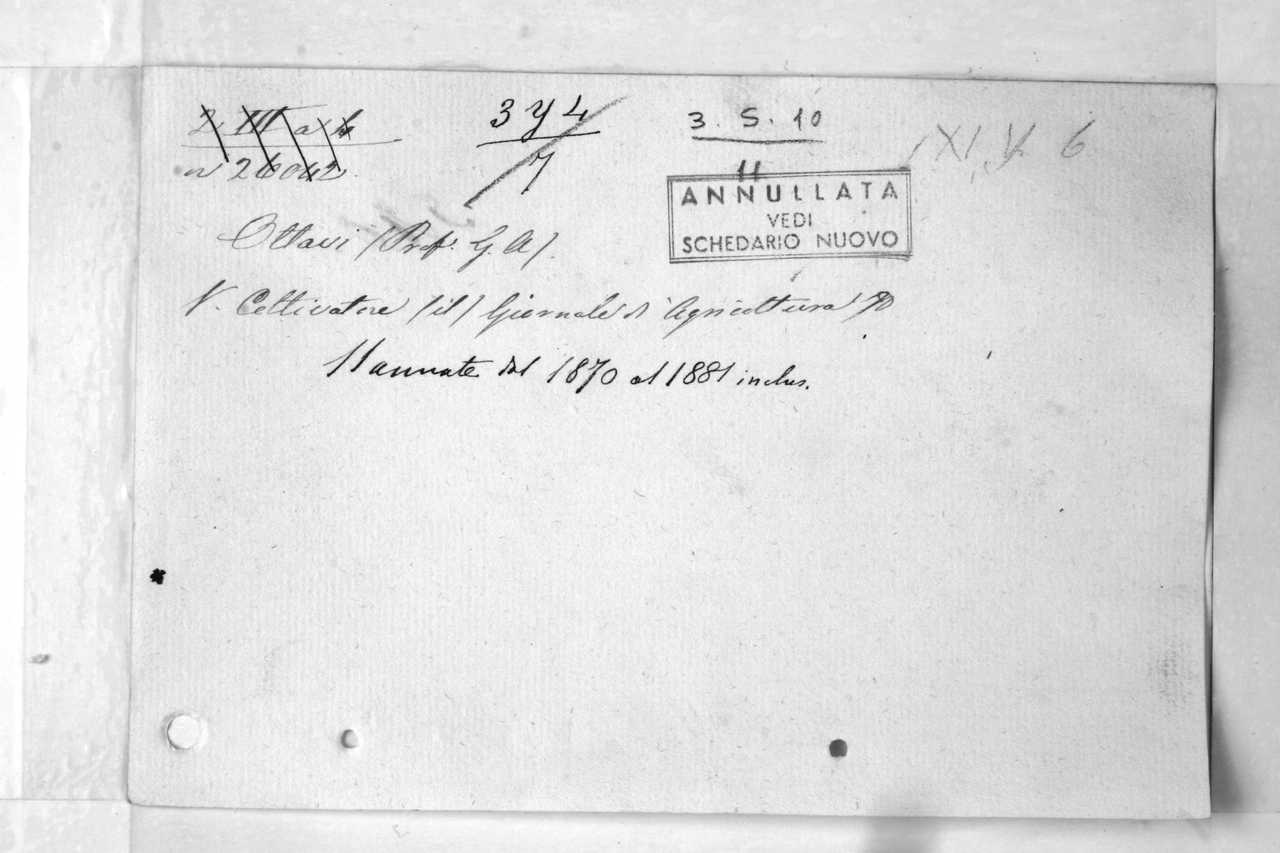 3 y 4
7
3. S. 10
11
XI. V. 6
n 26042
ANNULLATA
VEDI
SCHEDARIO NUOVO
Ottavi (Prof. G. A).
V. Coltivatore (il) Giornale di Agricoltura
11 annate dal 1870 al 1881 inclus.